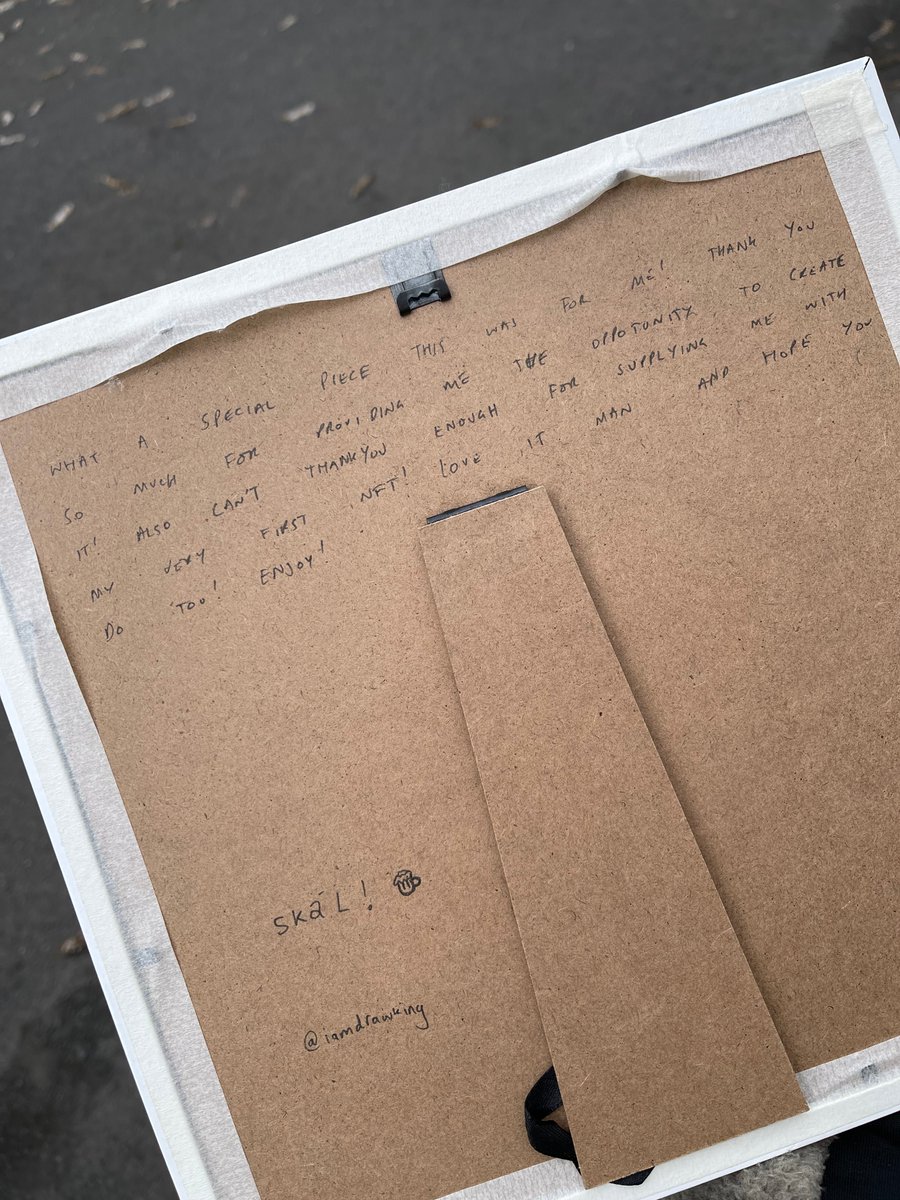 WHAT A SPECIAL PIECE THIS WAS FOR ME! THANK YOU
SO MUCH FOR PROVIDING ME THE OPPOTUNITY TO CREATE
IT! ALSO CAN'T THANKYOU ENOUGH FOR SUPPLYING ME WITH
MY VERY FIRST NFT! LOVE IT MAN AND HOPE YOU
DO TOO! ENJOY!
SKäL!
@iamdrawking